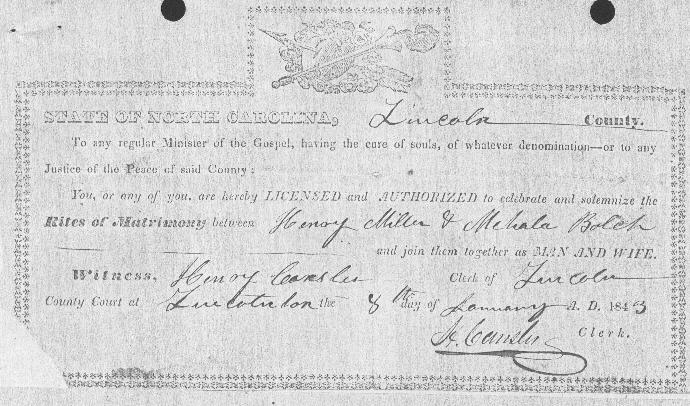 STATE OF NORTH CAROLINA, Lincoln County.
To any regular Minister of the Gospel, having the care of souls, of whatever denomination—or to any
Justice of the Peace of said County:
You, or any of you, are hereby LICENSED and AUTHORIZED to celebrate and solemnize the
Rites of Matrimony between Henry Miller & Mehala Bolch
and join them together as MAN AND WIFE.
Witness, Henry Cansler Clerk of Lincoln
County Court at Lincolnton the 8th day of January A. D. 1843
H. Cansler Clerk.